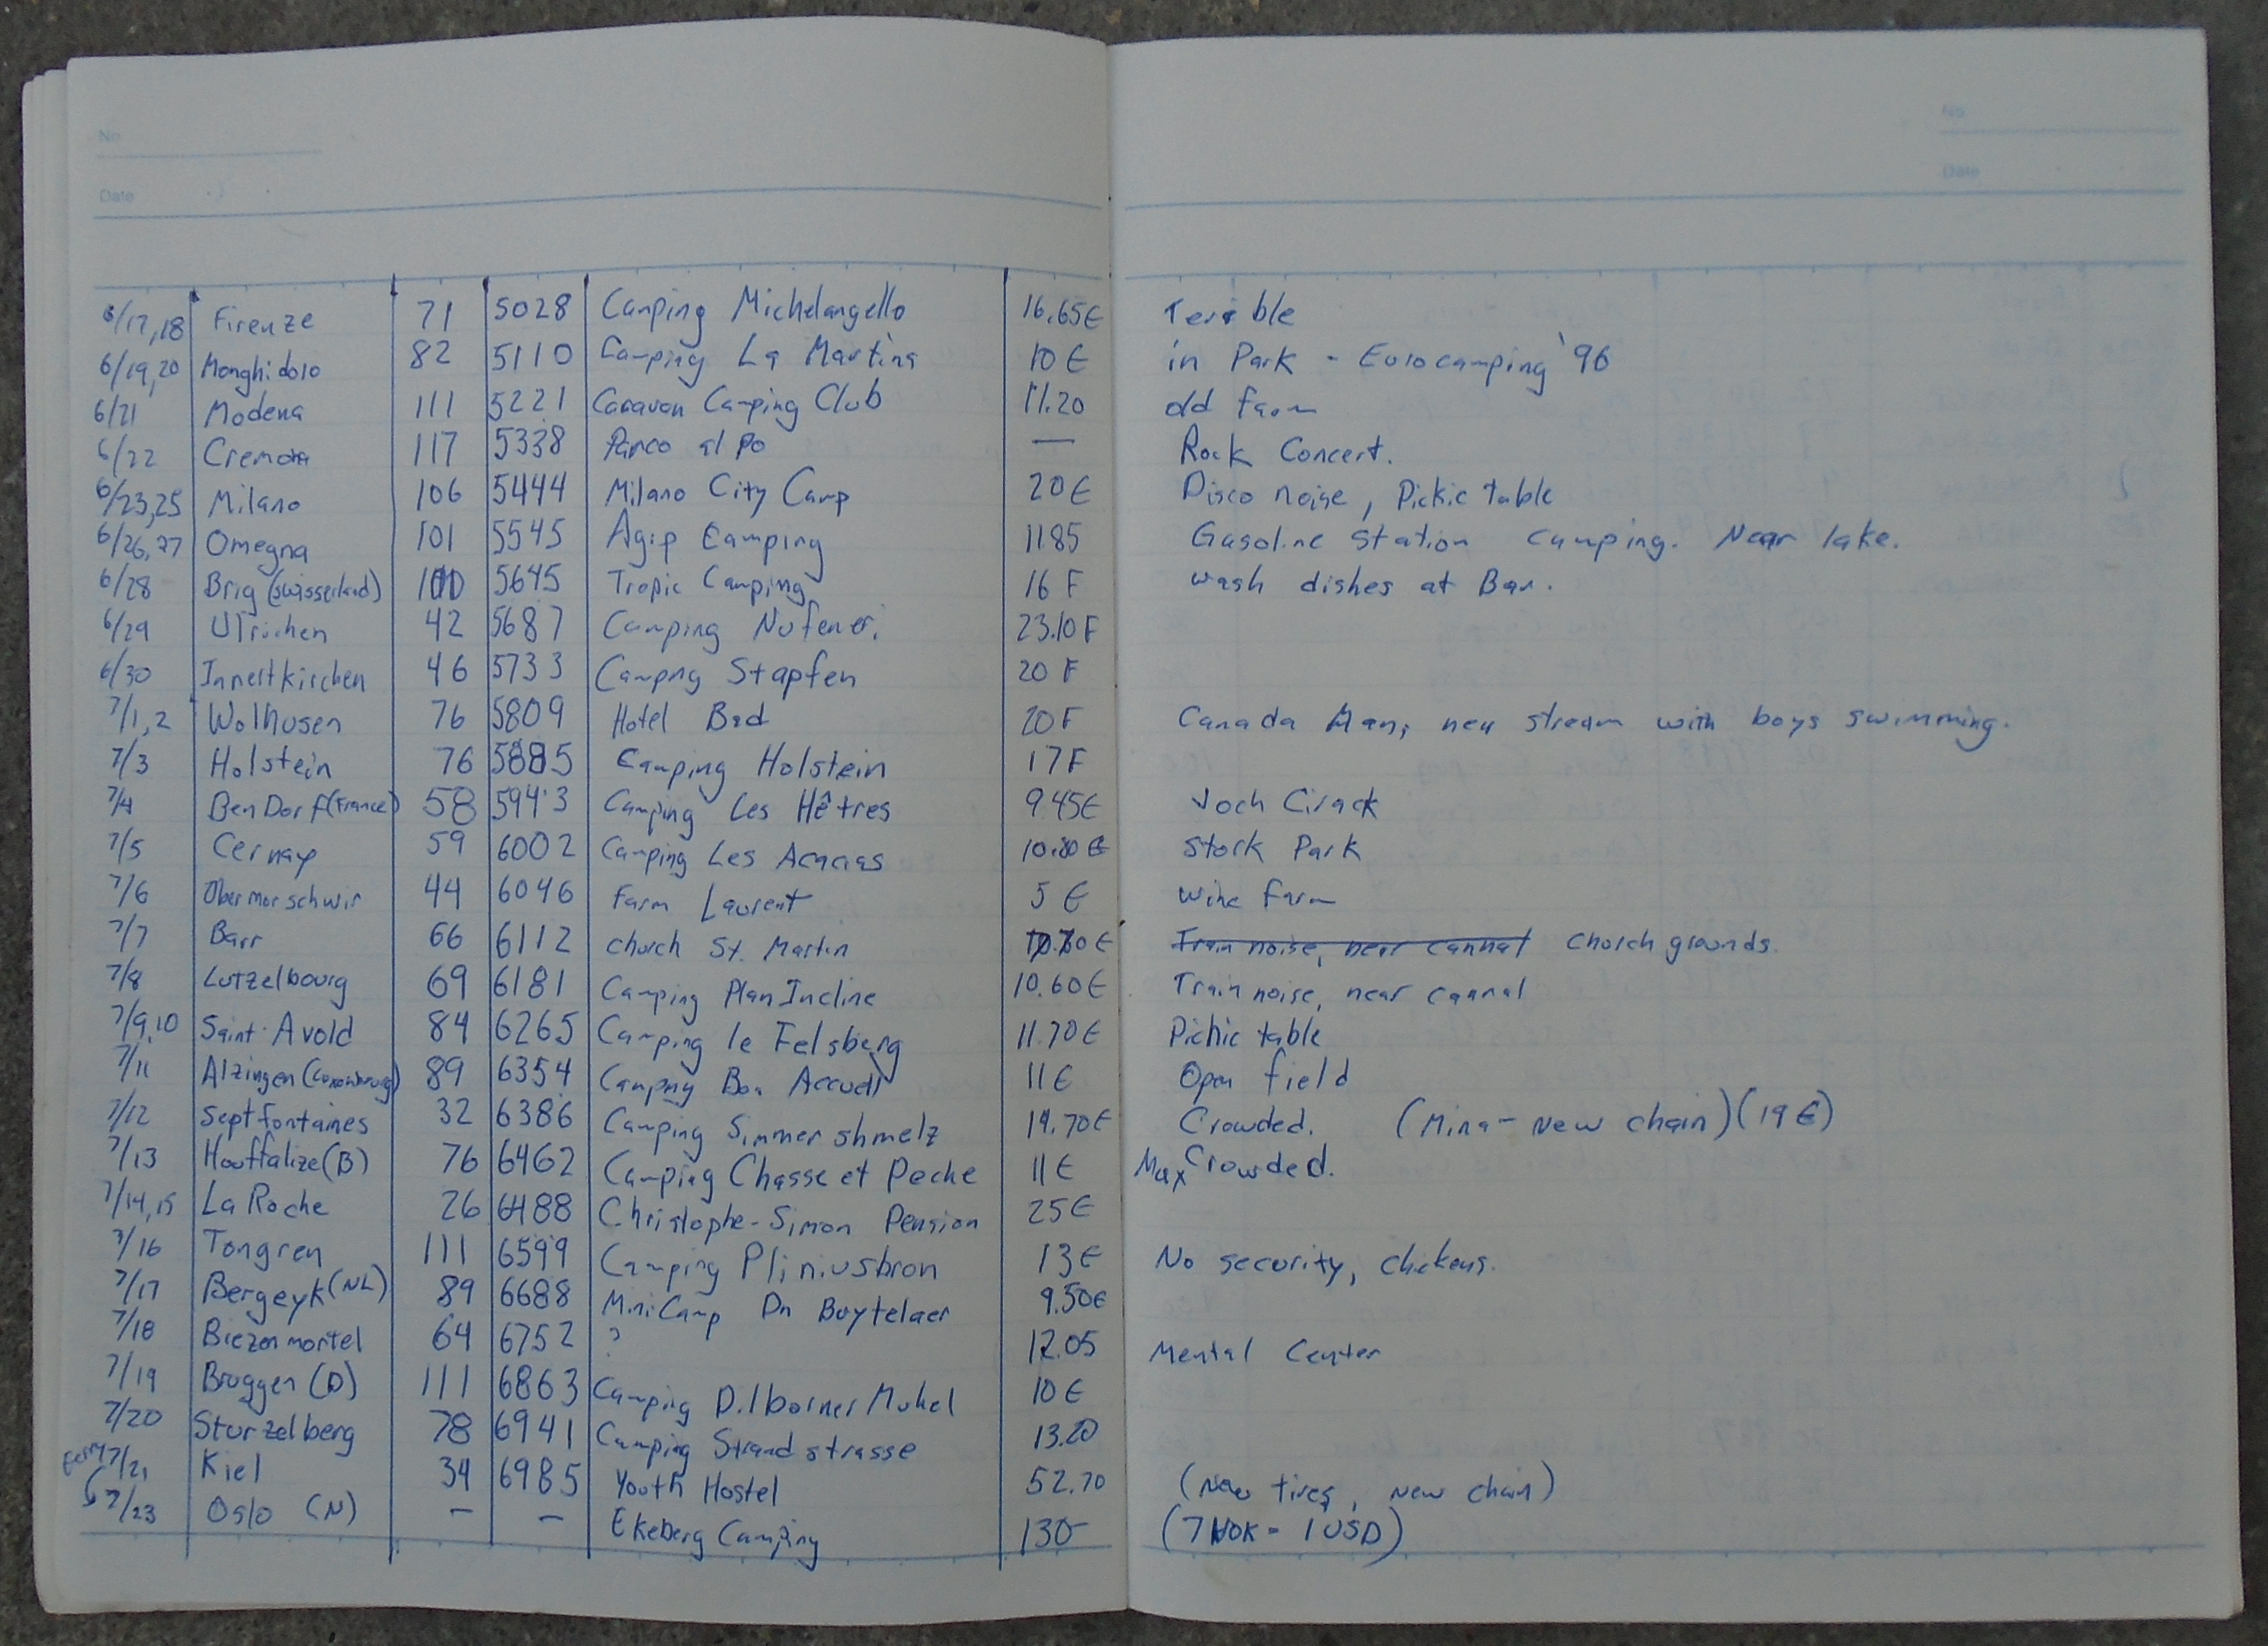 No
Date
No
Date
6/17,18 Firenze 71 5028 Camping Michelangello 16.65€ Terrible
6/19,20 Monghidolo 82 5110 Camping La Martina 10€ in Park - Eurocamping '96
6/21 Modena 111 5221 Caravan Camping Club 11.20 old farm
6/22 Cremona 117 5338 Parco al Po — Rock Concert.
6/23,25 Milano 106 5444 Milano City Camp 20€ Disco noise, Pickic table
6/26,27 Omegna 101 5545 Agip Camping 11.85 Gasoline station camping. Near lake.
6/28 Brig (Swisserland) 100 5645 Tropic Camping 16 F wash dishes at Bar.
6/29 Ulrichen 42 5687 Camping Nufener. 23.10 F
6/30 Innertkirchen 46 5733 Camping Stapfen 20 F
7/1,2 Wolhusen 76 5809 Hotel Bad 20 F Canada Man, near stream with boys swimming.
7/3 Holstein 76 5885 Camping Holstein 17 F
7/4 BenDorf (France) 58 5943 Camping Les Hêtres 9.45€ Joch Cirack
7/5 Cernay 59 6002 Camping Les Acacias 10.80 € Stork Park
7/6 Obermorschwir 44 6046 Farm Laurent 5 € wine farm
7/7 Barr 66 6112 church St. Martin € Train noise, near cannal Chorch grounds.
7/8 Lutzelbourg 69 6181 Camping Plan Incline 10.60€ Train noise, near cannal
7/9,10 Saint Avold 84 6265 Camping le Felsberg 11.70€ Pichic table
7/11 Alzingen (Luxembourg) 89 6354 Camping Bon Accueil 11€ Open field
7/12 Septfontaines 32 6386 Camping Simmershmelz 14.70€ Crowded. (Mina - New chain) (19€)
7/13 Houffalize (B) 76 6462 Camping Chasse et Peche 11€ Max Crowded.
7/14,15 La Roche 26 6488 Christophe-Simon Pension 25€
7/16 Tongren 111 6599 Camping Pliniusbron 13€ No security, chickens.
7/17 Bergeyk (NL) 89 6688 MiniCamp Dn Buytelaer 9.50€
7/18 Biezenmortel 64 6752 ? 12.05 Mental Center
7/19 Bruggen (D) 111 6863 Camping Dilborner Muhel 10€
7/20 Sturzelberg 78 6941 Camping Strandstrasse 13.20
Ferry 7/21 Kiel 34 6985 Youth Hostel 52.70 (New tires, New chain)
7/23 Oslo (N) — — Ekeberg Camping 130- (7 NOK = 1 USD)